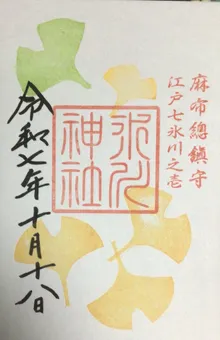 麻布總鎮守
江戸七氷川之壱
氷川
神社
令和七年十月十八日